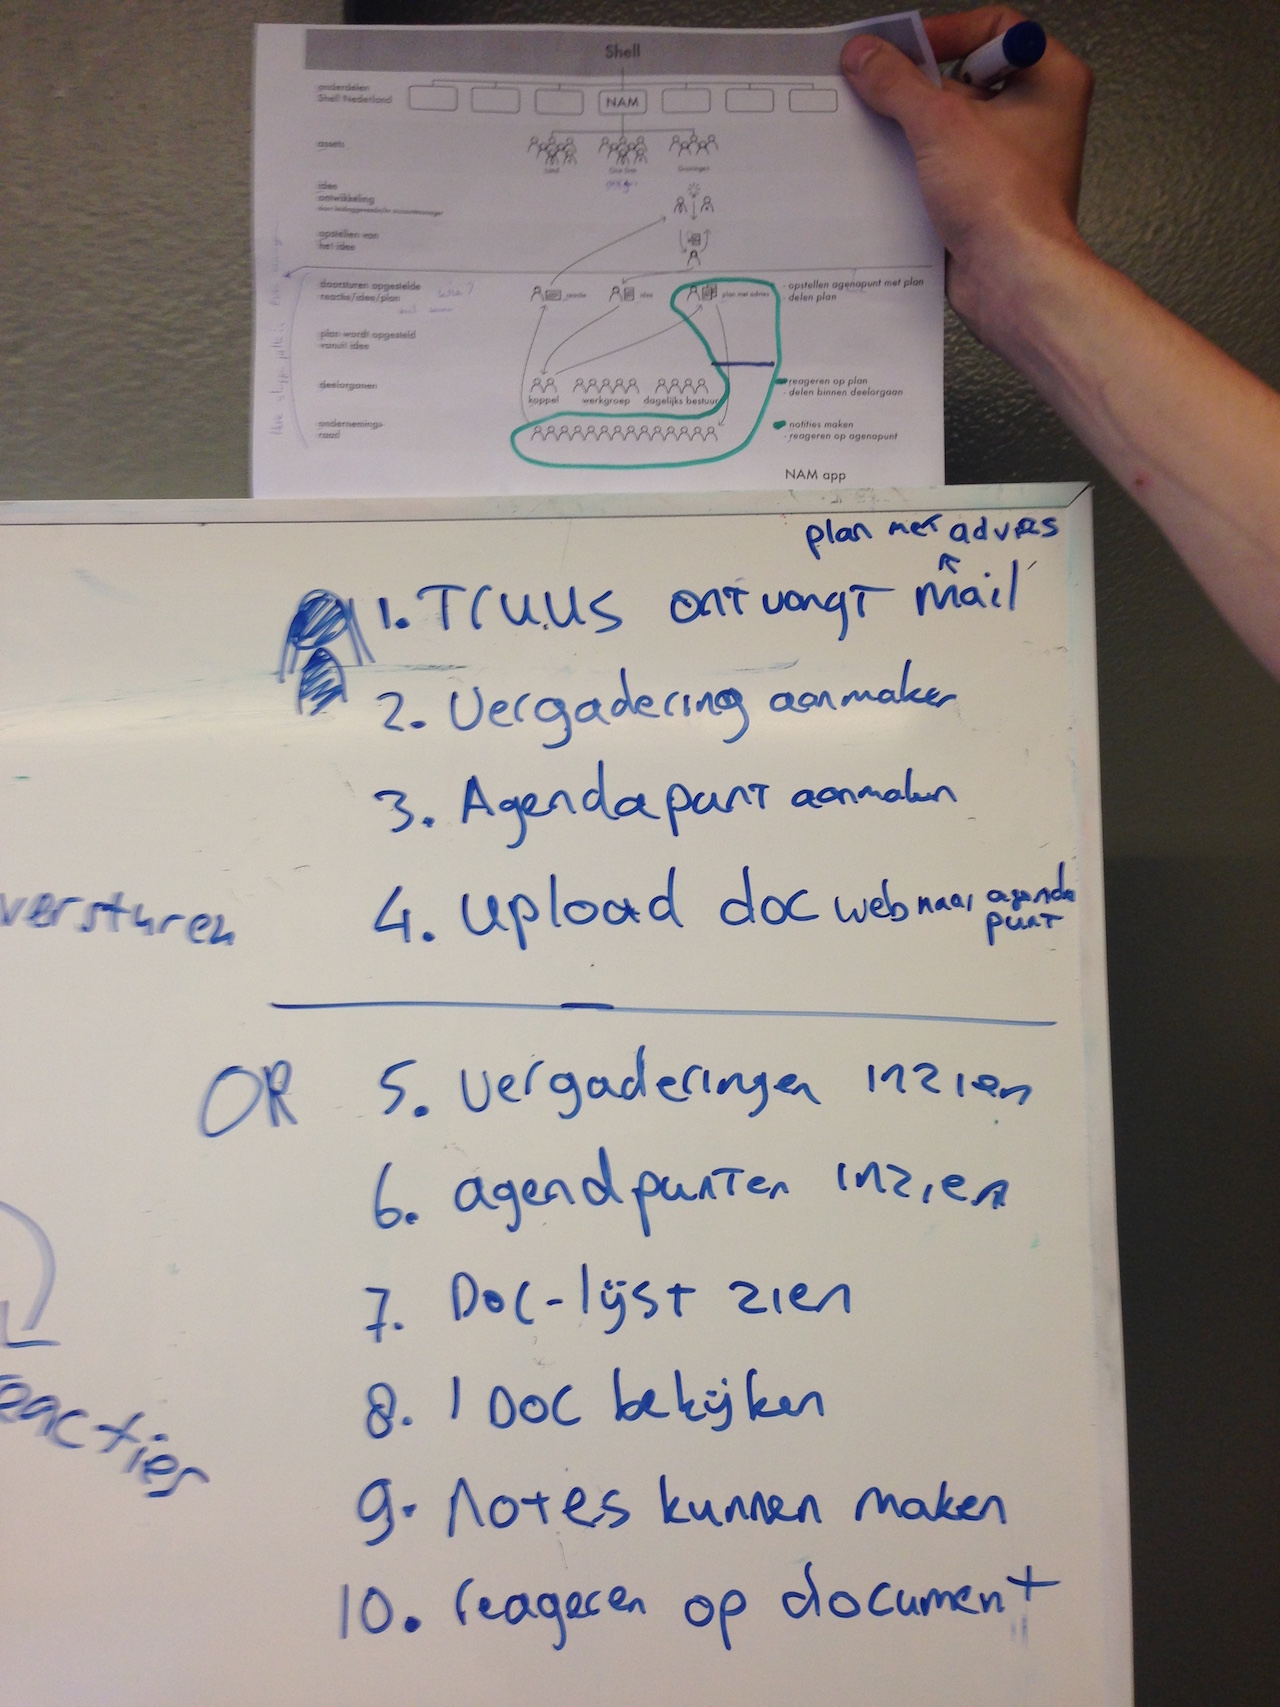 Shell
onderdelen
Shell Nederland
NAM
assets
Land
One Gas
Groningen
idee
ontwikkeling
opstellen van
het idee
doorsturen opgestelde
reactie/idee/plan
reactie
idee
plan met advies
- opstellen agenapunt met plan
- delen plan
plan wordt opgesteld
vanuit idee
deelorganen
koppel
werkgroep
dagelijks bestuur
reageren op plan
- delen binnen deelorgaan
ondernemings-
raad
notities maken
- reageren op agenapunt
NAM app
plan met advies
1. Truus ontvangt mail
2. Vergadering aanmaken
3. Agendapunt aanmaken
4. upload doc web naar agenda
punt
versturen
OR 5. vergaderingen inzien
6. agendpunten inzien
7. Doc-lijst zien
8. 1 Doc bekijken
reacties
9. notes kunnen maken
10. reageren op document